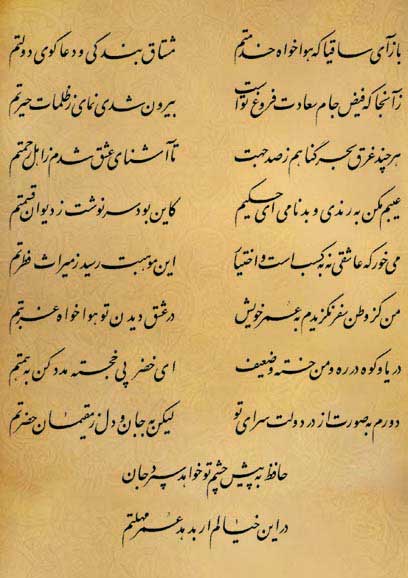 بازآی ساقیا که هواخواه خدمتم مشتاق بندگی و دعاگوی دولتم
زآنجا که فیض جام سعادت فروغ تواست بیرون شدی نمای ز ظلمات حیرتم
هرچند غرق بحر گناهم ز صد جهت تا آشنای عشق شدم ز اهل رحمتم
عیبم مکن به رندی و بدنامی ای حکیم کاین بود سرنوشت ز دیوان قسمتم
می خور که عاشقی نه به کسب است و اختیار این موهبت رسید ز میراث فطرتم
من کز وطن سفر نگزیدم به عمر خویش در عشق دیدن تو هواخواه غربتم
دریا و کوه در ره و من خسته و ضعیف ای خضر پی خجسته مدد کن به همتم
دورم به صورت از در دولت سرای تو لیکن به جان و دل ز مقیمان حضرتم
حافظ به پیش چشم تو خواهد سپرد جان
در این خیالم ار بدهد عمر مهلتم